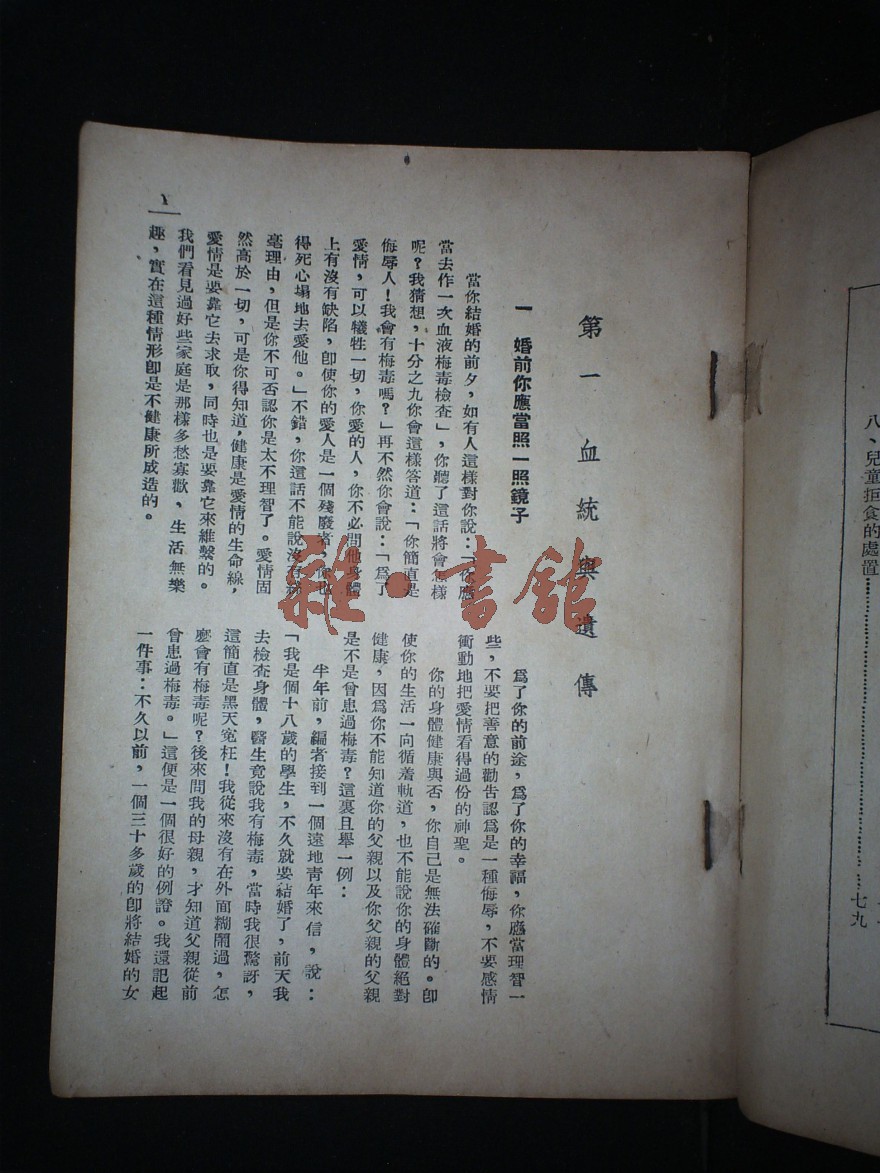 八、兒童拒食的處置……七九
第一 血統與遺傳
一 婚前你應當照一照鏡子
當你結婚的前夕，如有人這樣對你說：「你應
當去作一次血液梅毒檢查」，你聽了這話將會怎樣
呢？我猜想，十分之九你會這樣答道：「你簡直是
侮辱人！我會有梅毒嗎？」再不然你會說：「爲了
愛情，可以犧牲一切，你愛的人，你不必問他身體
上有沒有缺陷，卽使你的愛人是一個殘廢者，你也
得死心塌地去愛他。」不錯，你這話不能說沒有絲
毫理由，但是你不可否認你是太不理智了。愛情固
然高於一切，可是你得知道，健康是愛情的生命線，
愛情是要靠它去求取，同時也是要靠它來維繫的。
我們看見過好些家庭是那樣多愁寡歡、生活無樂
趣，實在這種情形卽是不健康所威造的。
爲了你的前途，爲了你的幸福，你應當理智一
些，不要把善意的勸告認爲是一種侮辱，不要感情
衝動地把愛情看得過份的神聖。
你的身體健康與否，你自己是無法確斷的。卽
使你的生活一向循着軌道，也不能說你的身體絕對
健康，因爲你不能知道你的父親以及你父親的父親
是不是曾患過梅毒？這裏且舉一例：
半年前，編者接到一個遠地靑年來信，說：
「我是個十八歲的學生，不久就要結婚了，前天我
去檢查身體，醫生竟說我有梅毒，當時我很驚訝，
這簡直是黑天寃枉！我從來沒有在外面糊鬧過，怎
麽會有梅毒呢？後來問我的母親，才知道父親從前
曾患過梅毒。」這便是一個很好的例證。我還記起
一件事：不久以前，一個三十多歲的卽將結婚的女
1
雜·書館